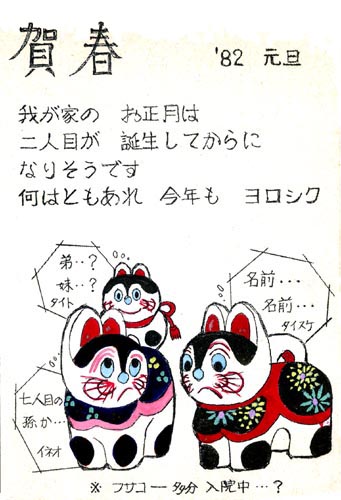 賀春
'82 元旦
我が家の お正月は
二人目が 誕生してからに
なりそうです
何はともあれ 今年も ヨロシク
弟‥?
妹‥?
タイト
名前・・・
名前・・・
タイスケ
七人目の
孫か・・・
イネオ
※ フサコー 多分 入院中・・・?